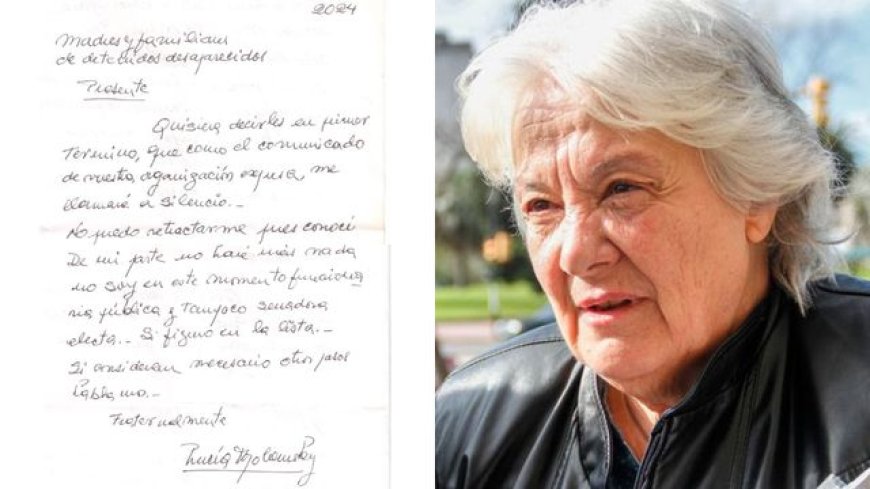 2024
Madres y familiares
de detenidos desaparecidos
Presente
Quisiera decirles en primer
Término, que como el comunicado
de vuestra organización expresa, me
llamaré a silencio.-
No puedo retractarme pues conocí
De mi parte no haré más nada
no soy en este momento funciona
ria pública y Tampoco senadora
electa.- Si figuro en la lista.-
Si consideran necesario otros pasos
Fraternalmente
Lucía Topolansky